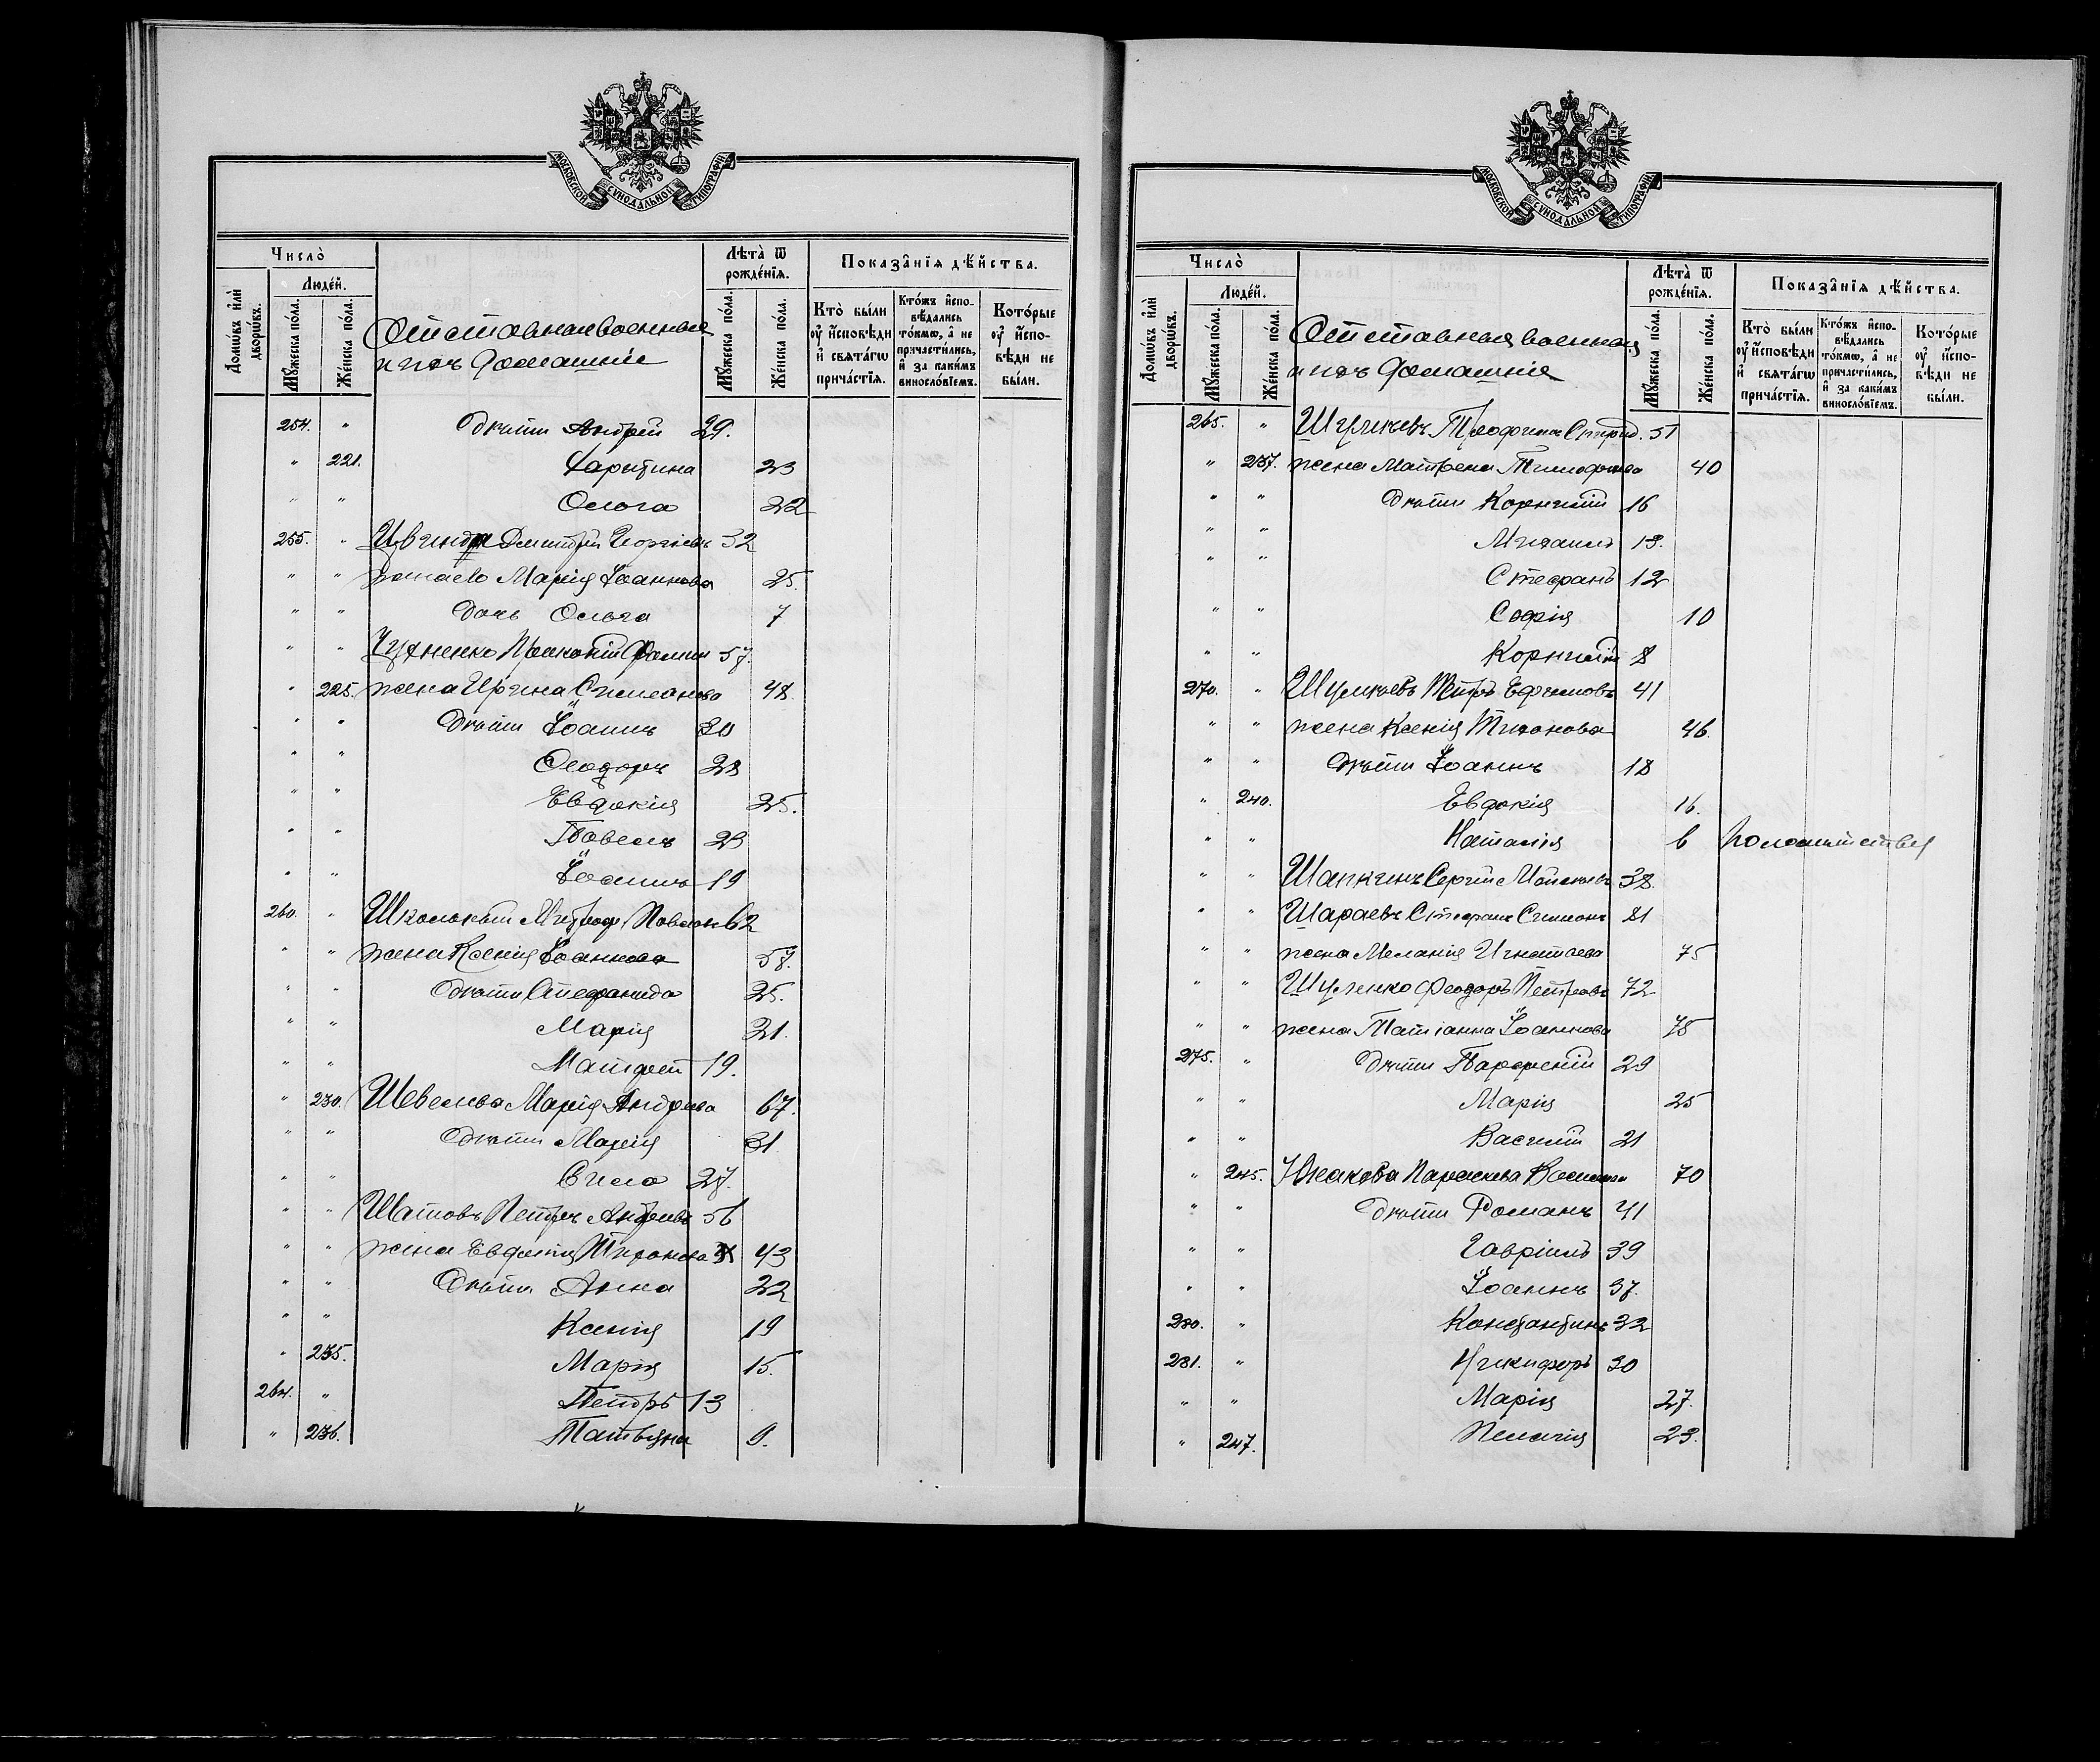 МОСКОВСКОЙ СѴНОДАЛЬНОЙ ТИПОГРАФІИ
Число̀
Домѡ́въ и҆лѝ дворѡ́въ.
Люде́й.
Мꙋ́жеска по́ла.
Же́нска по́ла.
Отставная военныя
и ихъ домашніе
Лѣта̀ ѿ рожде́нїѧ.
Мꙋ́жеска по́ла.
Же́нска по́ла.
Показа̑нїѧ дѣ́йства.
Кто̀ бы́ли оу҆ и҆́сповѣди и҆ свѧта́гѡ прича́стїѧ.
Кто́жъ и҆спо-вѣ́дались то́кмѡ, а҆ не причасти́лись, и҆ за каки́мъ виносло́вїемъ.
Кото́рые оу҆ и҆́спо-вѣди не бы́ли.
254. " дѣти Андрей 29.
" 221. Харитина 23
" " Ольга 22
255. " Цвиндя Дмитрій Георгіевъ 32
" " Марія Іоаннова 25.
" " дочь Ольга 7
" " Чухненко Прокопій Ѳомин 57.
" 225. жена Ирина Симеонова 48.
" " дѣти Іоаннъ 30
" " Ѳеодоръ 28
" " Евдокія 25.
" " Павелъ 23
" " Іоаннъ 19
260. " Школьный Митроф. Павлов 62
" " жена Ксенія Іоаннова 57.
" " дѣти Стефанида 25.
" " Марія 21.
" " Матфей 19.
" 230. Шевелева Марія Андреева 67.
" " дѣти Марія 31
" " Сила 27.
" " Шатовъ Петръ Андреевъ 56
" " жена Евфимія Тихонова 43
" " дѣти Анна 22
" " Ксенія 19
" 235. Марія 15.
264. " Петръ 13
" 236. Татьяна 9.
МОСКОВСКОЙ СѴНОДАЛЬНОЙ ТИПОГРАФІИ
Число̀
Домѡ́въ и҆лѝ дворѡ́въ.
Люде́й.
Мꙋ́жеска по́ла.
Же́нска по́ла.
Отставная военная
и ихъ домашніе
Лѣта̀ ѿ рожде́нїѧ.
Мꙋ́жеска по́ла.
Же́нска по́ла.
Показа̑нїѧ дѣ́йства.
Кто̀ бы́ли оу҆ и҆́сповѣди и҆ свѧта́гѡ прича́стїѧ.
Кто́жъ и҆спо-вѣ́дались то́кмѡ, а҆ не причасти́лись, и҆ за каки́мъ виносло́вїемъ.
Кото́рые оу҆ и҆́спо-вѣди не бы́ли.
265. " Шуликовъ Трофимъ Спирид. 51
" 237. жена Матрена Тимофеева 40
" " дѣти Корнилій 16
" " Михаилъ 13.
" " Стефанъ 12
" " Софія 10
" " Корнилій 8
270. " Шумковъ Петръ Ефимовъ 41
" " жена Ксенія Тихонова 46.
" " дѣти Іоаннъ 18
" 240. Евдокія 16.
" " Наталія 6 по малолѣтству
" " Шапкинъ Сергій 38.
" " Шараевъ Стефанъ Симеон. 81
" " жена Меланія Игнатьева 75
" " Шуленко Феодоръ Петровъ 72
" " жена Татіанна Іоаннова 75
275. " дѣти Парфеній 29
" " Марія 25
" " Василій 21
" 245. Южакова Параскева 70
" " дѣти Романъ 41
" " Гавріилъ 39
" " Іоаннъ 37.
280. " Константинъ 32
281. " Никифоръ 30
" " Марія 27.
" 247. Пелагія 23.